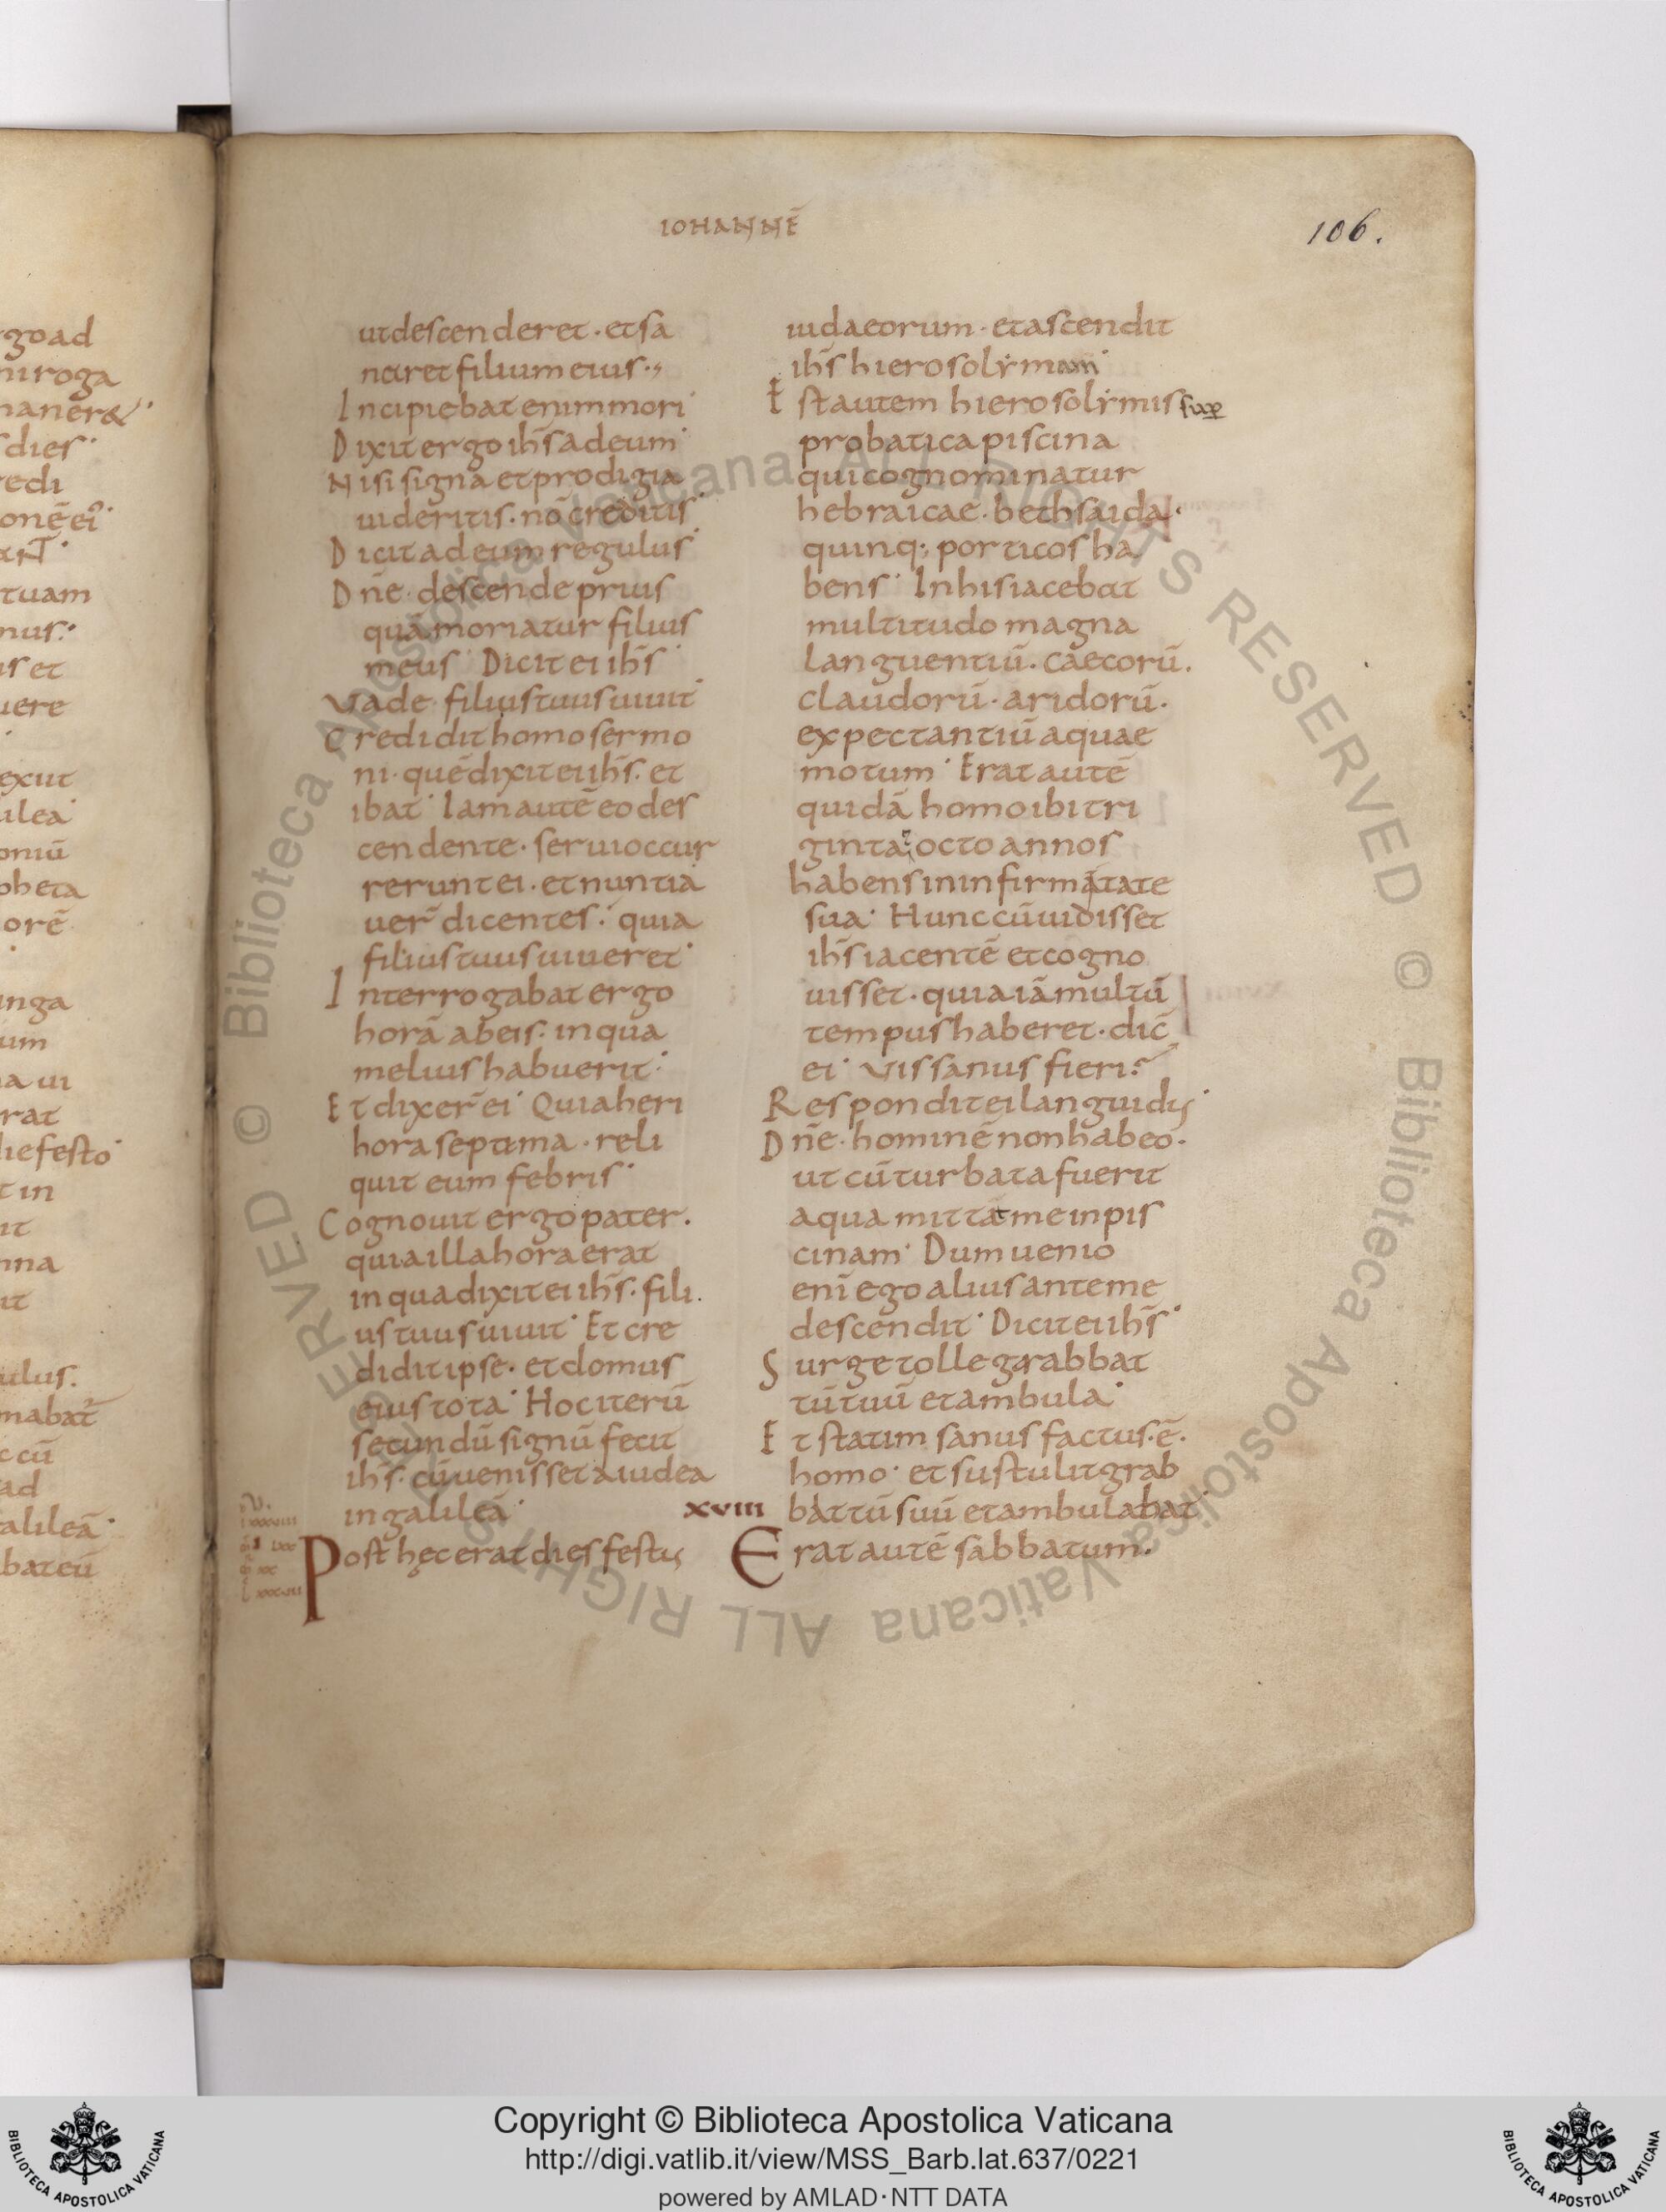 IOHANNĒ
106.
ut descenderet · et sa
naret filium eius ·,
Incipiebat enim mori·
Dixit ergo ihs̄ ad eum·
Nisi signa et prodigia
uideritis · nō creditis·
Dicit ad eum regulus·
Dn̄e · descende prius
quā moriatur filius
meus · Dicit ei ihs̄·
Vade · filius tuus uiuit·
Credidit homo sermo
ni · quē dixit ei ihs̄ · et
ibat · Iam autē eo des
cendente · serui occur
rerunt ei · et nuntia
uer̄ dicentes · quia
filius tuus uiueret·
Interrogabat ergo
horā ab eis · in qua
melius habuerit·
Et dixer̄ ei · Quia heri
hora septima · reli
quit eum febris·
Cognouit ergo pater ·
quia illa hora erat
in qua dixit ei ihs̄ · fili
us tuus uiuit · Et cre
didit ipse · et domus
eius tota · Hoc iterū
secundū signū fecit
ihs̄ · cū uenisset a iudea
in galileā·
Post hęc erat dies festus
iudaeorum · et ascendit
ihs̄ hierosolymam·
Est autem hierosolymis sup
probatica piscina
qui cognominatur
hebraicae · bethsaida·
quinq; porticos ha
bens · In his iacebat
multitudo magna
languentiū · caecorū ·
claudorū · aridorū ·
expectantiū aquae
motum · Erat autē
quidā homo ibi tri
ginta et octo annos
habens in infirmitate
sua · Hunc cū uidisset
ihs̄ iacentē et cogno
uisset · quia iā multū
tempus haberet · dic̄
ei · Vis sanus fieri?
Respondit ei languidus·
Dn̄e · hominē non habeo ·
ut cū turbata fuerit
aqua mittat me in pis
cinam · Dum uenio
enī ego alius ante me
descendit · Dicit ei ihs̄·
Surge tolle grabbat
tū tuū et ambula·
Et statim sanus factus · ē ·
homo · et sustulit grab
battū suū et ambulabat·
xviii
Erat autē sabbatum ·
Copyright © Biblioteca Apostolica Vaticana
http://digi.vatlib.it/view/MSS_Barb.lat.637/0221
powered by AMLAD·NTT DATA
BIBLIOTECA APOSTOLICA VATICANA
BIBLIOTECA APOSTOLICA VATICANA
© Biblioteca Apostolica Vaticana ALL RIGHTS RESERVED © Biblioteca Apostolica Vaticana ALL RIGHTS RESERVED